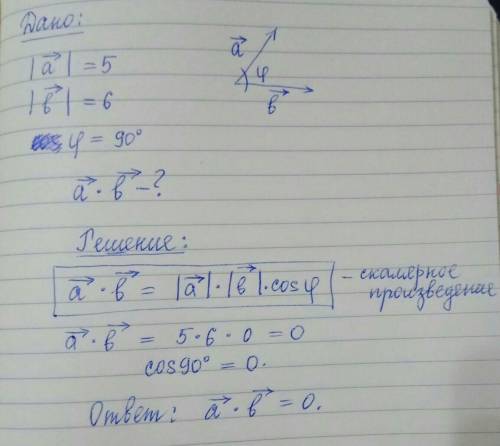 Дано:
|a⃗| = 5
|b⃗| = 6
φ = 90°
a⃗ · b⃗ - ?
a⃗
φ
b⃗
Решение:
a⃗ · b⃗ = |a⃗| · |b⃗| · cosφ - скалярное произведение
a⃗ · b⃗ = 5 · 6 · 0 = 0
cos90° = 0.
Ответ: a⃗ · b⃗ = 0.